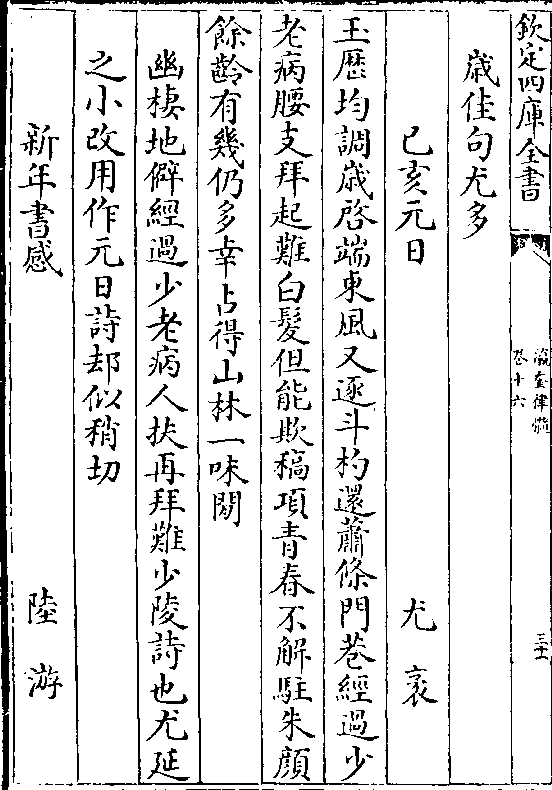 欽定四庫全書
瀛奎律髓
卷十六
三十二
歲佳句尤多
己亥元日 尤袤
玉厯均調歲啓端東風又逐斗杓還蕭條門巷經過少
老病腰支拜起難白髮但能欺稿項青春不解駐朱顔
餘齡有幾仍多幸占得山林一味閒
幽棲地僻經過少老病人扶再拜難少陵詩也尤延
之小改用作元日詩却似稍切
新年書感 陸游